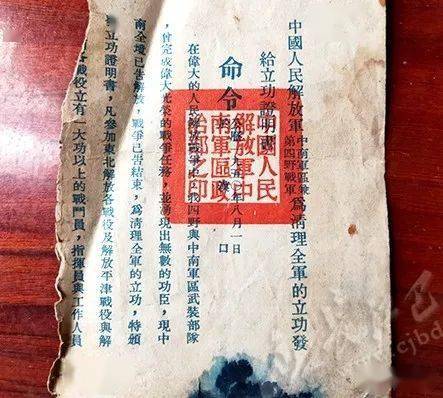 中國人民解放軍中南軍區兼第四野戰軍爲清理全軍的立功發
給立功證明書
命令
八月一日
口
在偉大的人民解放戰爭中，我四野與中南軍區武裝部隊
，曾完成偉大光榮的戰爭任務，並湧現出無數的功臣，現中
南全境已告解放，戰爭已告結束，爲清理全軍的立功，特頒
立功證明書，凡參加東北解放各戰役及解放平津戰役與解
各戰役立有一大功以上的戰鬥員，指揮員與工作人員
中國人民
解放軍中
南軍區政
治部之印